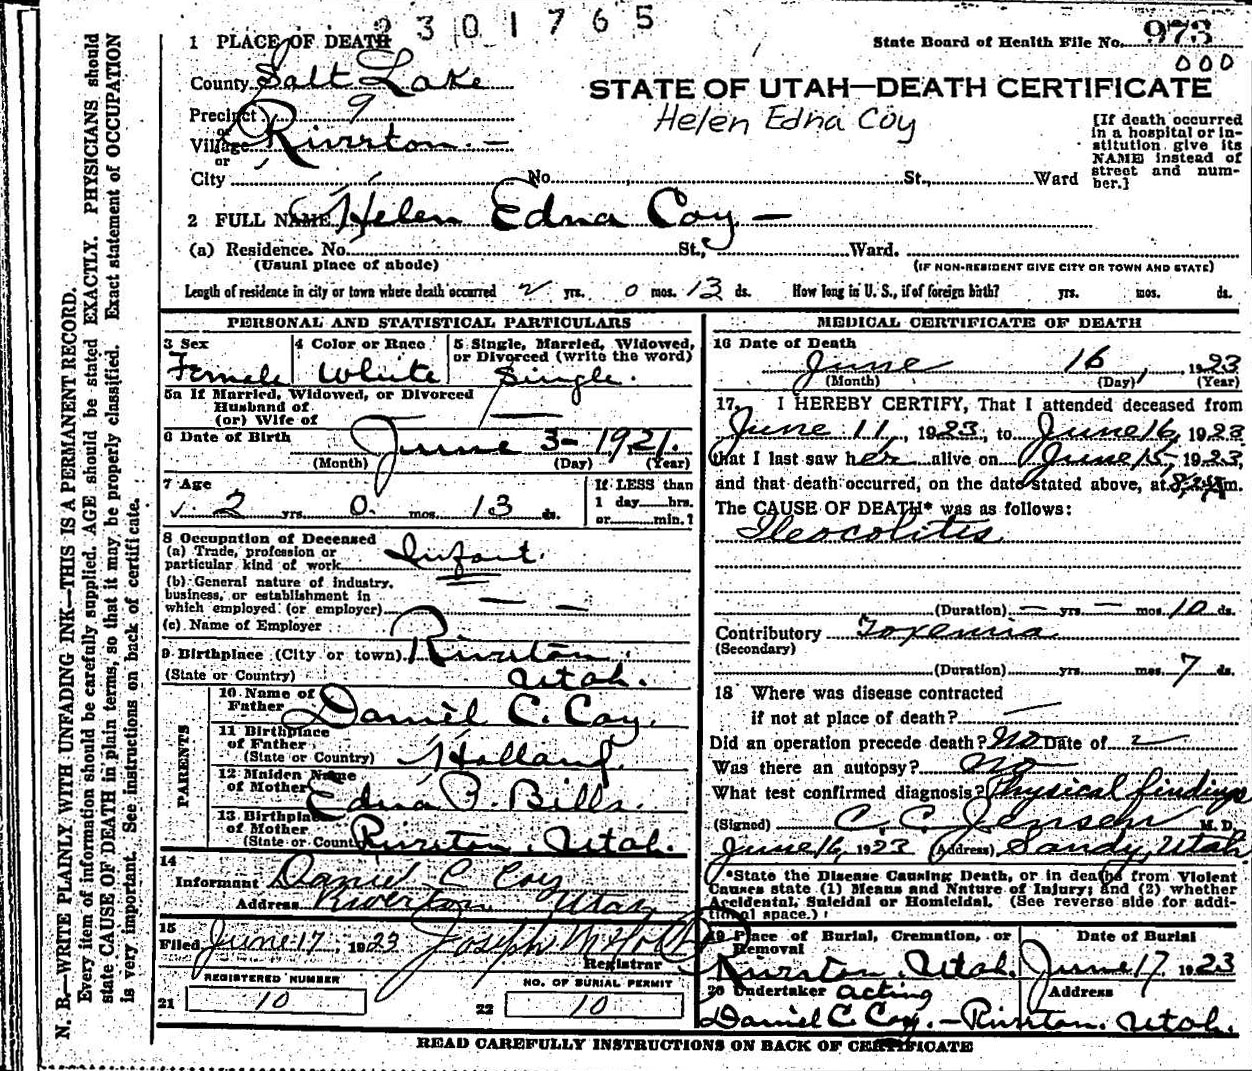 2301765
1 PLACE OF DEATH
State Board of Health File No. 973
000
County Salt Lake
STATE OF UTAH—DEATH CERTIFICATE
Precinct 9
Helen Edna Coy
or
Village Riverton. —
or
City No. St., Ward
[If death occurred
in a hospital or in-
stitution give its
NAME instead of
street and num-
ber.]
2 FULL NAME Helen Edna Coy —
(a) Residence. No. St., Ward.
(Usual place of abode) (IF NON-RESIDENT GIVE CITY OR TOWN AND STATE)
Length of residence in city or town where death occurred 2 yrs. 0 mos. 13 ds. How long in U. S., if of foreign birth? yrs. mos. ds.
PERSONAL AND STATISTICAL PARTICULARS
3 Sex
Female
4 Color or Race
White
5 Single, Married, Widowed,
or Divorced (write the word)
Single.
5a If Married, Widowed, or Divorced
Husband of
(or) Wife of —
6 Date of Birth
June 3 - 1921.
(Month) (Day) (Year)
7 Age
2 yrs. 0 mos. 13 ds.
If LESS than
1 day hrs.
or min.?
8 Occupation of Deceased
(a) Trade, profession or
particular kind of work Infant.
(b) General nature of industry,
business, or establishment in
which employed (or employer) — —
(c) Name of Employer
9 Birthplace (City or town) Riverton.
(State or Country) Utah.
PARENTS
10 Name of
Father Daniel C. Coy.
11 Birthplace
of Father
(State or Country) Holland.
12 Maiden Name
of Mother Edna P. Bills.
13 Birthplace
of Mother
(State or Country) Riverton. Utah.
14
Informant Daniel C Coy
Address Riverton Utah
15
Filed June 17 1923 Joseph M
Registrar
REGISTERED NUMBER
21 10
NO. OF BURIAL PERMIT
22 10
MEDICAL CERTIFICATE OF DEATH
16 Date of Death
June 16, 1923
(Month) (Day) (Year)
17. I HEREBY CERTIFY, That I attended deceased from
June 11, 1923, to June 16, 1923
that I last saw her alive on June 15, 1923,
and that death occurred, on the date stated above, at m.
The CAUSE OF DEATH* was as follows:
Ileocolitis
(Duration) — yrs. — mos. 10 ds.
Contributory Toxemia
(Secondary)
(Duration) yrs. mos. 7 ds.
18 Where was disease contracted
if not at place of death? —
Did an operation precede death? No Date of
Was there an autopsy? No
What test confirmed diagnosis? Physical findings
(Signed) C. C. Jensen M. D.
June 16, 1923 (Address) Sandy, Utah
*State the Disease Causing Death, or in deaths from Violent
Causes state (1) Means and Nature of Injury; and (2) whether
Accidental, Suicidal or Homicidal. (See reverse side for addi-
tional space.)
19 Place of Burial, Cremation, or
Removal
Riverton. Utah.
Date of Burial
June 17, 1923
20 Undertaker acting
Daniel C. Coy.
Address
— Riverton. Utah.
READ CAREFULLY INSTRUCTIONS ON BACK OF CERTIFICATE
N. B.—WRITE PLAINLY WITH UNFADING INK—THIS IS A PERMANENT RECORD.
Every item of information should be carefully supplied. AGE should be stated EXACTLY. PHYSICIANS should
state CAUSE OF DEATH in plain terms, so that it may be properly classified. Exact statement of OCCUPATION
is very important. See instructions on back of certificate.